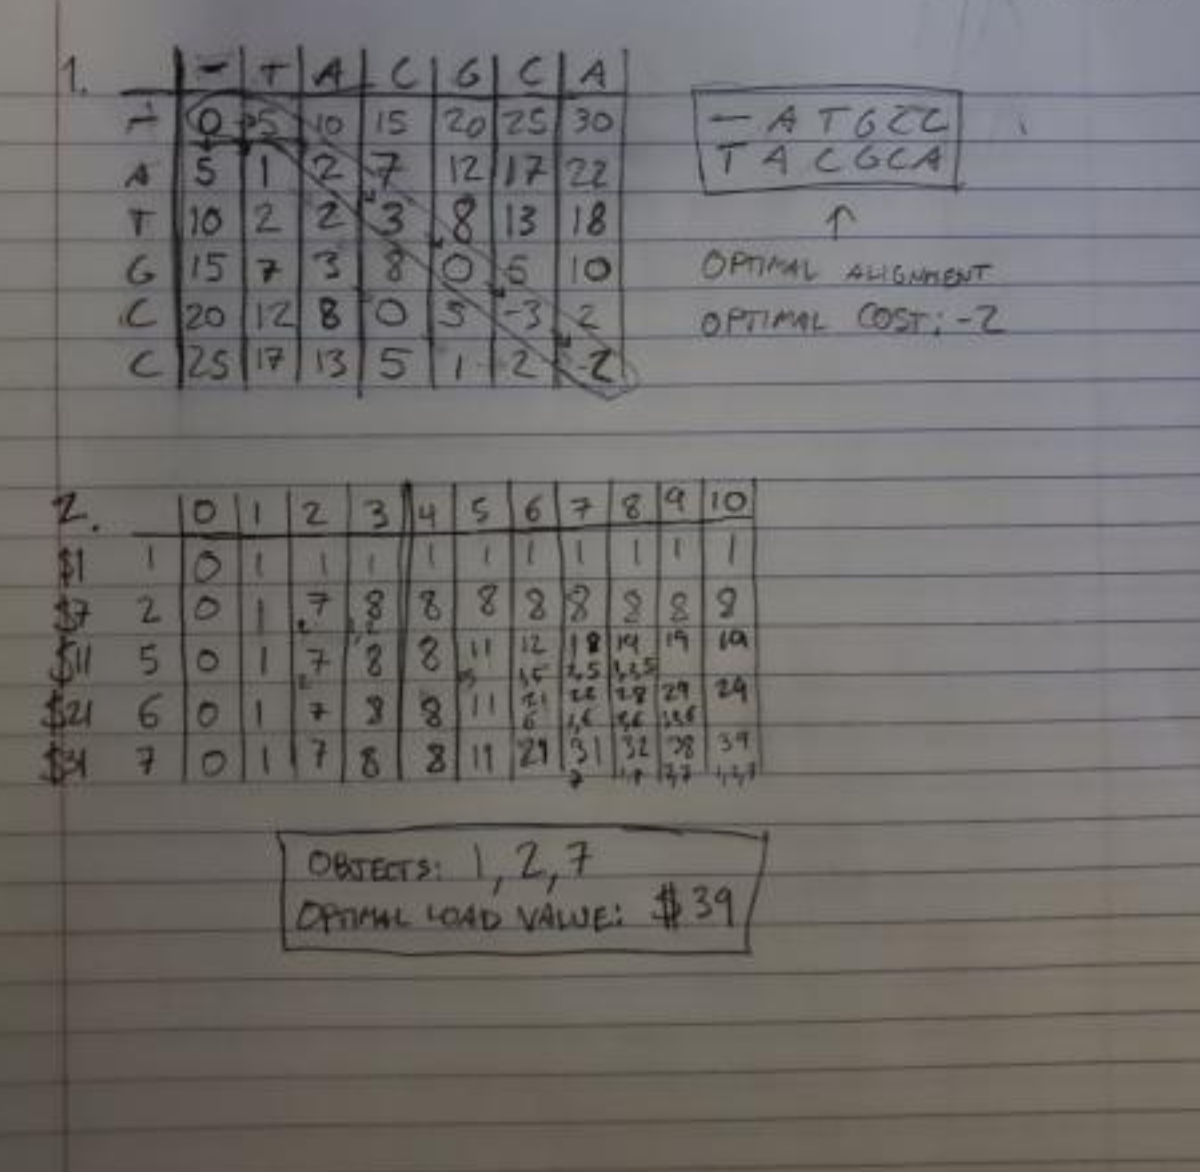 1. - T A C G C A
- 0 5 10 15 20 25 30
A 5 1 2 7 12 17 22
T 10 2 2 3 8 13 18
G 15 7 3 8 0 5 10
C 20 12 8 0 5 -3 2
C 25 17 13 5 1 2 -2
- A T G C C
T A C G C A
↑
OPTIMAL ALIGNMENT
OPTIMAL COST: -2
2. 0 1 2 3 4 5 6 7 8 9 10
$1 1 0 1 1 1 1 1 1 1 1 1 1
$7 2 0 1 7 8 8 8 8 8 8 8 8
$11 5 0 1 7 8 8 11 12 18 19 19 19
$21 6 0 1 7 8 8 11 21 22 28 29 29
$31 7 0 1 7 8 8 11 21 31 32 38 39
7 1,7 2,7 1,2,7
OBJECTS: 1, 2, 7
OPTIMAL LOAD VALUE: $39